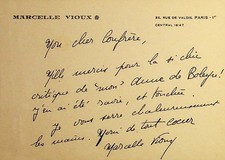 MARCELLE VIOUX
36, RUE DE VALOIS, PARIS - 1er
CENTRAL 19-47
Mon cher Confrère,
Mille mercis pour la si chic
critique de "mon" Anne de Boleyn!
J'en ai été ravie, et touchée.
Je vous serre chaleureusement
les mains. Merci de tout cœur
Marcelle Vioux